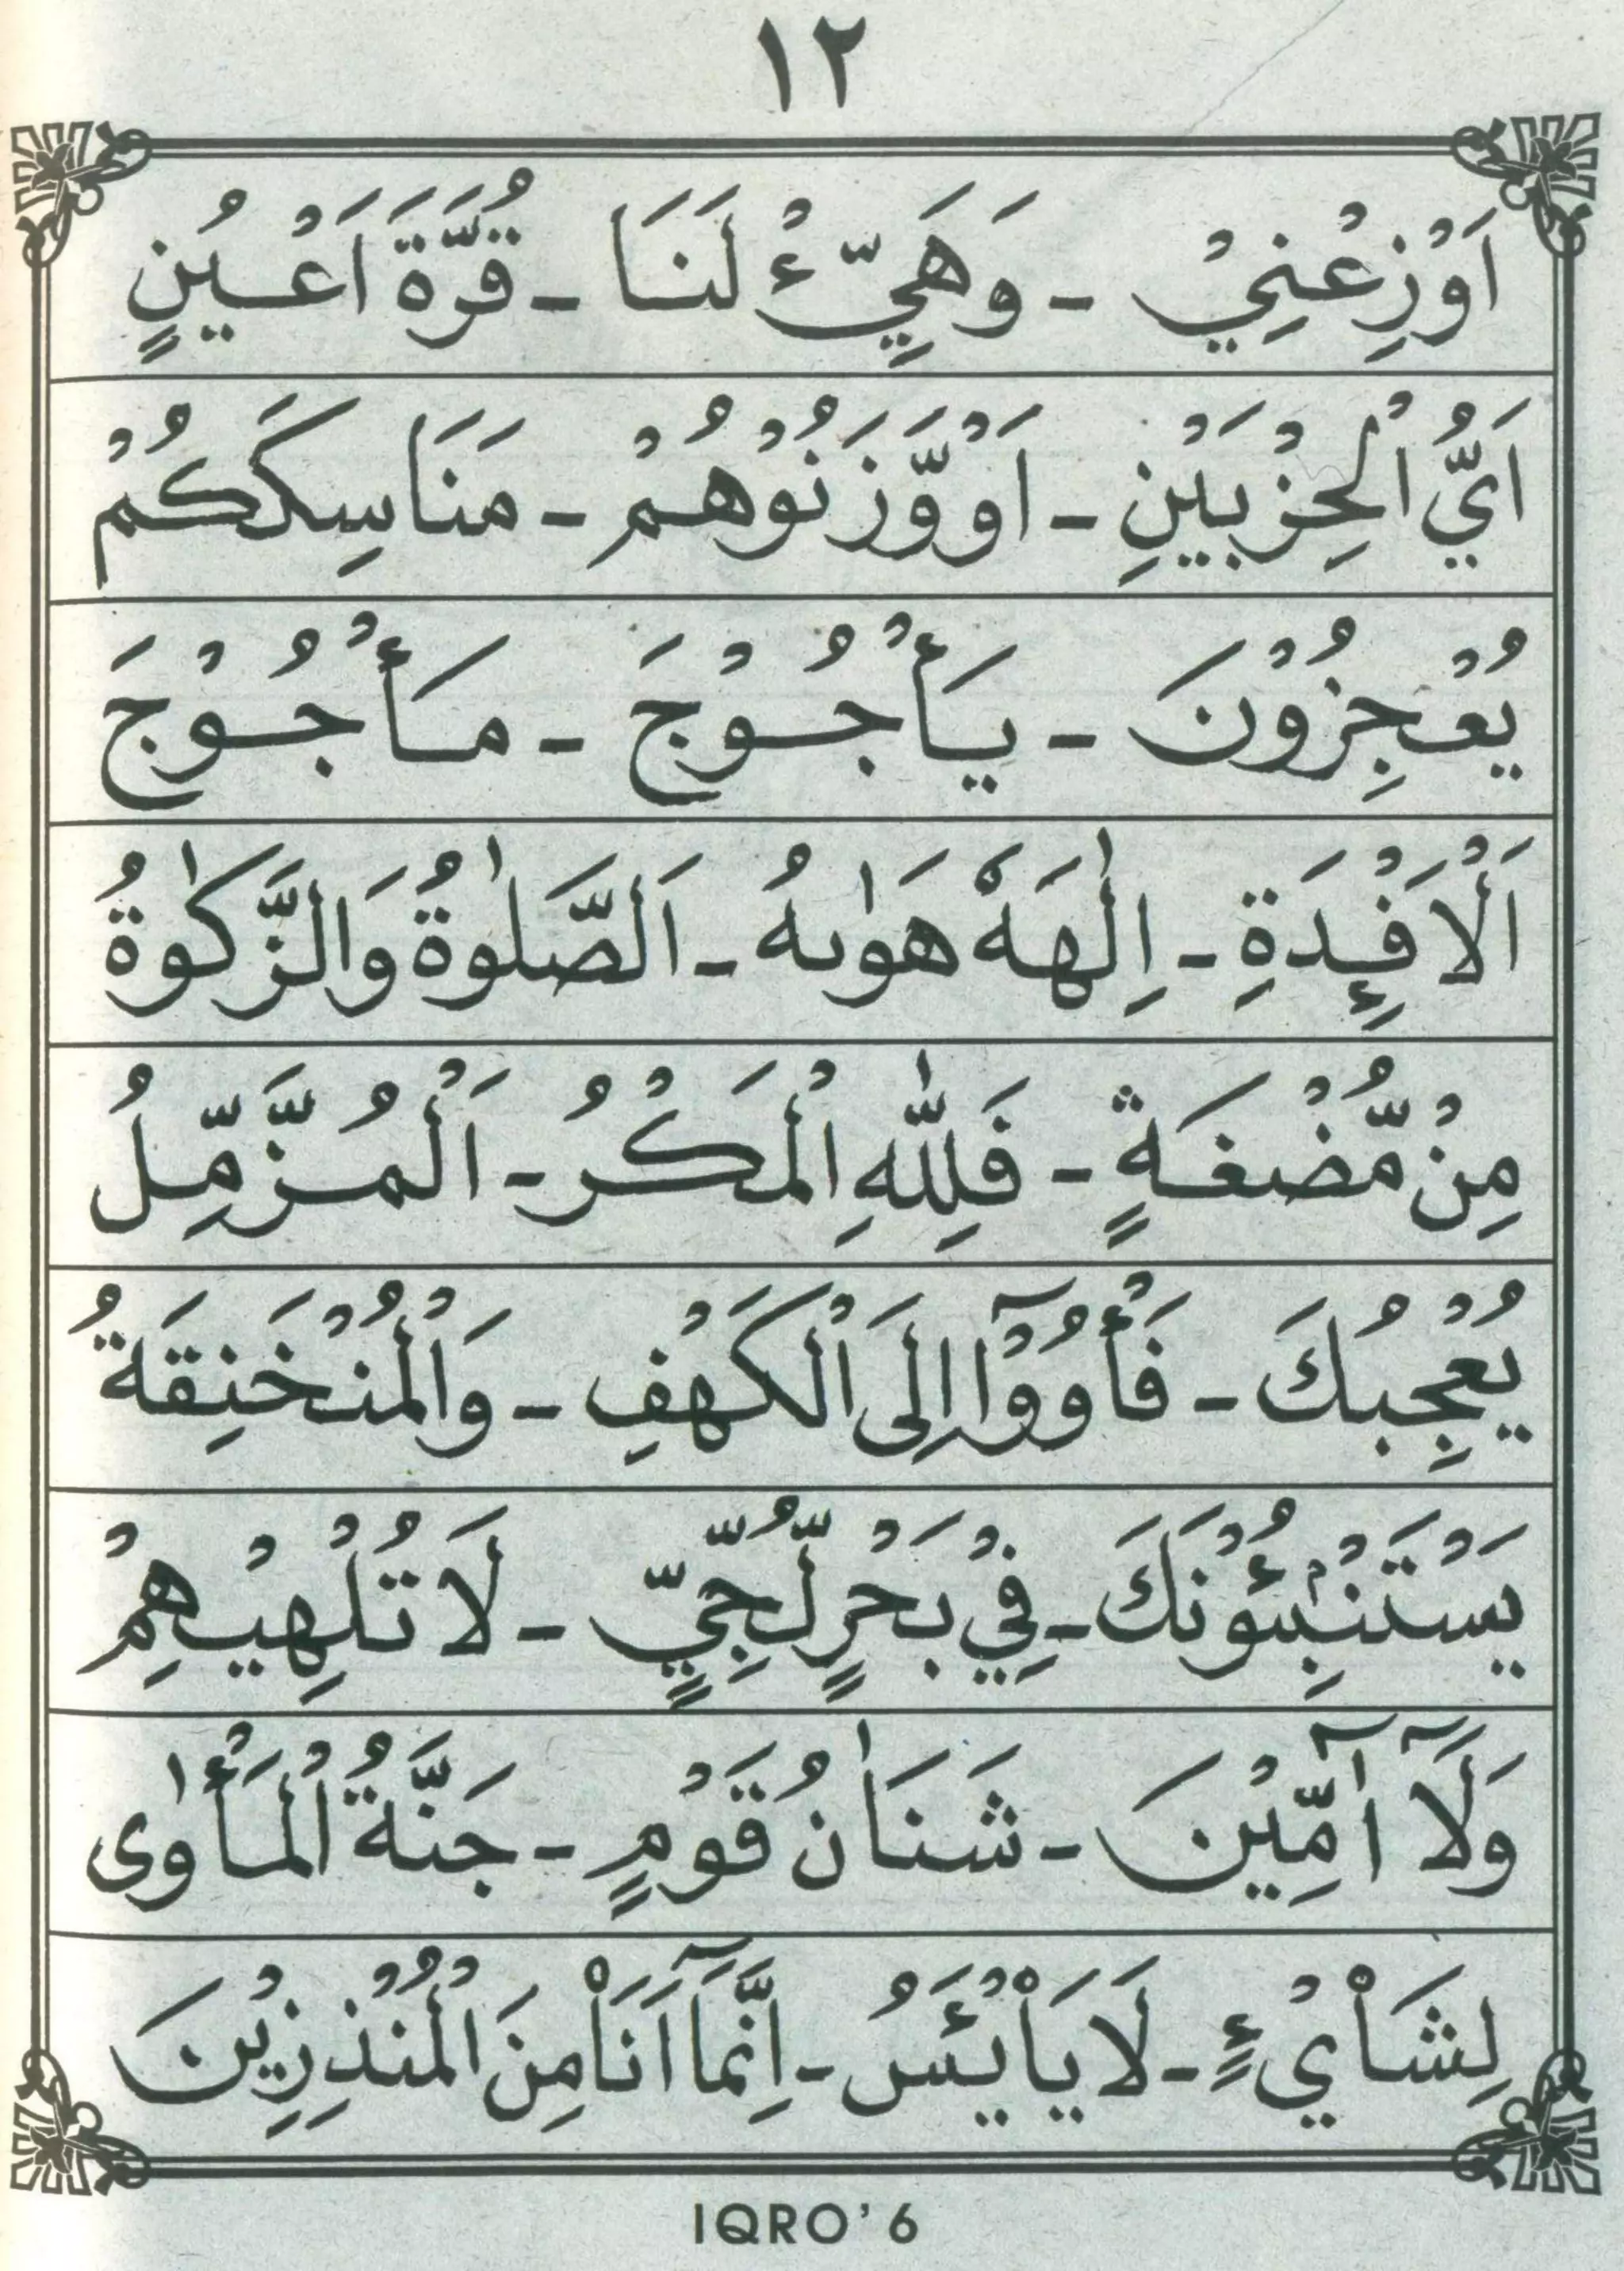 ١٢
اَوْزِعْنِيْ - وَهَيِّئْ لَنَا - قُرَّةَ اَعْيُنٍ
اَيُّ الْحِزْبَيْنِ - اَوْ وَّزَنُوْهُمْ - مَنَاسِكَكُمْ
يُعْجِزُوْنَ - يَأْجُوْجَ - مَأْجُوْجَ
اَلْاَفْـِٕدَةِ - اِلٰهَهٗ هَوٰىهُ - اَلصَّلٰوةُ وَالزَّكٰوةُ
مِنْ مُّضْغَةٍ - فَلِلّٰهِ الْمَكْرُ - اَلْمُزَّمِّلُ
يُعْجِبُكَ - فَأْوُوْٓا اِلَى الْكَهْفِ - وَالْمُنْخَنِقَةُ
يَسْتَنْۢبِئُوْنَكَ - فِيْ بَحْرٍ لُّجِّيٍّ - لَا تُلْهِيْهِمْ
وَلَآ اٰۤمِّيْنَ - شَنَاٰنُ قَوْمٍ - جَنَّةُ الْمَأْوٰى
لِشَا۟يْءٍ - لَا يَا۟يْـَٔسُ - اِنَّمَآ اَنَا۠ مِنَ الْمُنْذِرِيْنَ
IQRO' 6